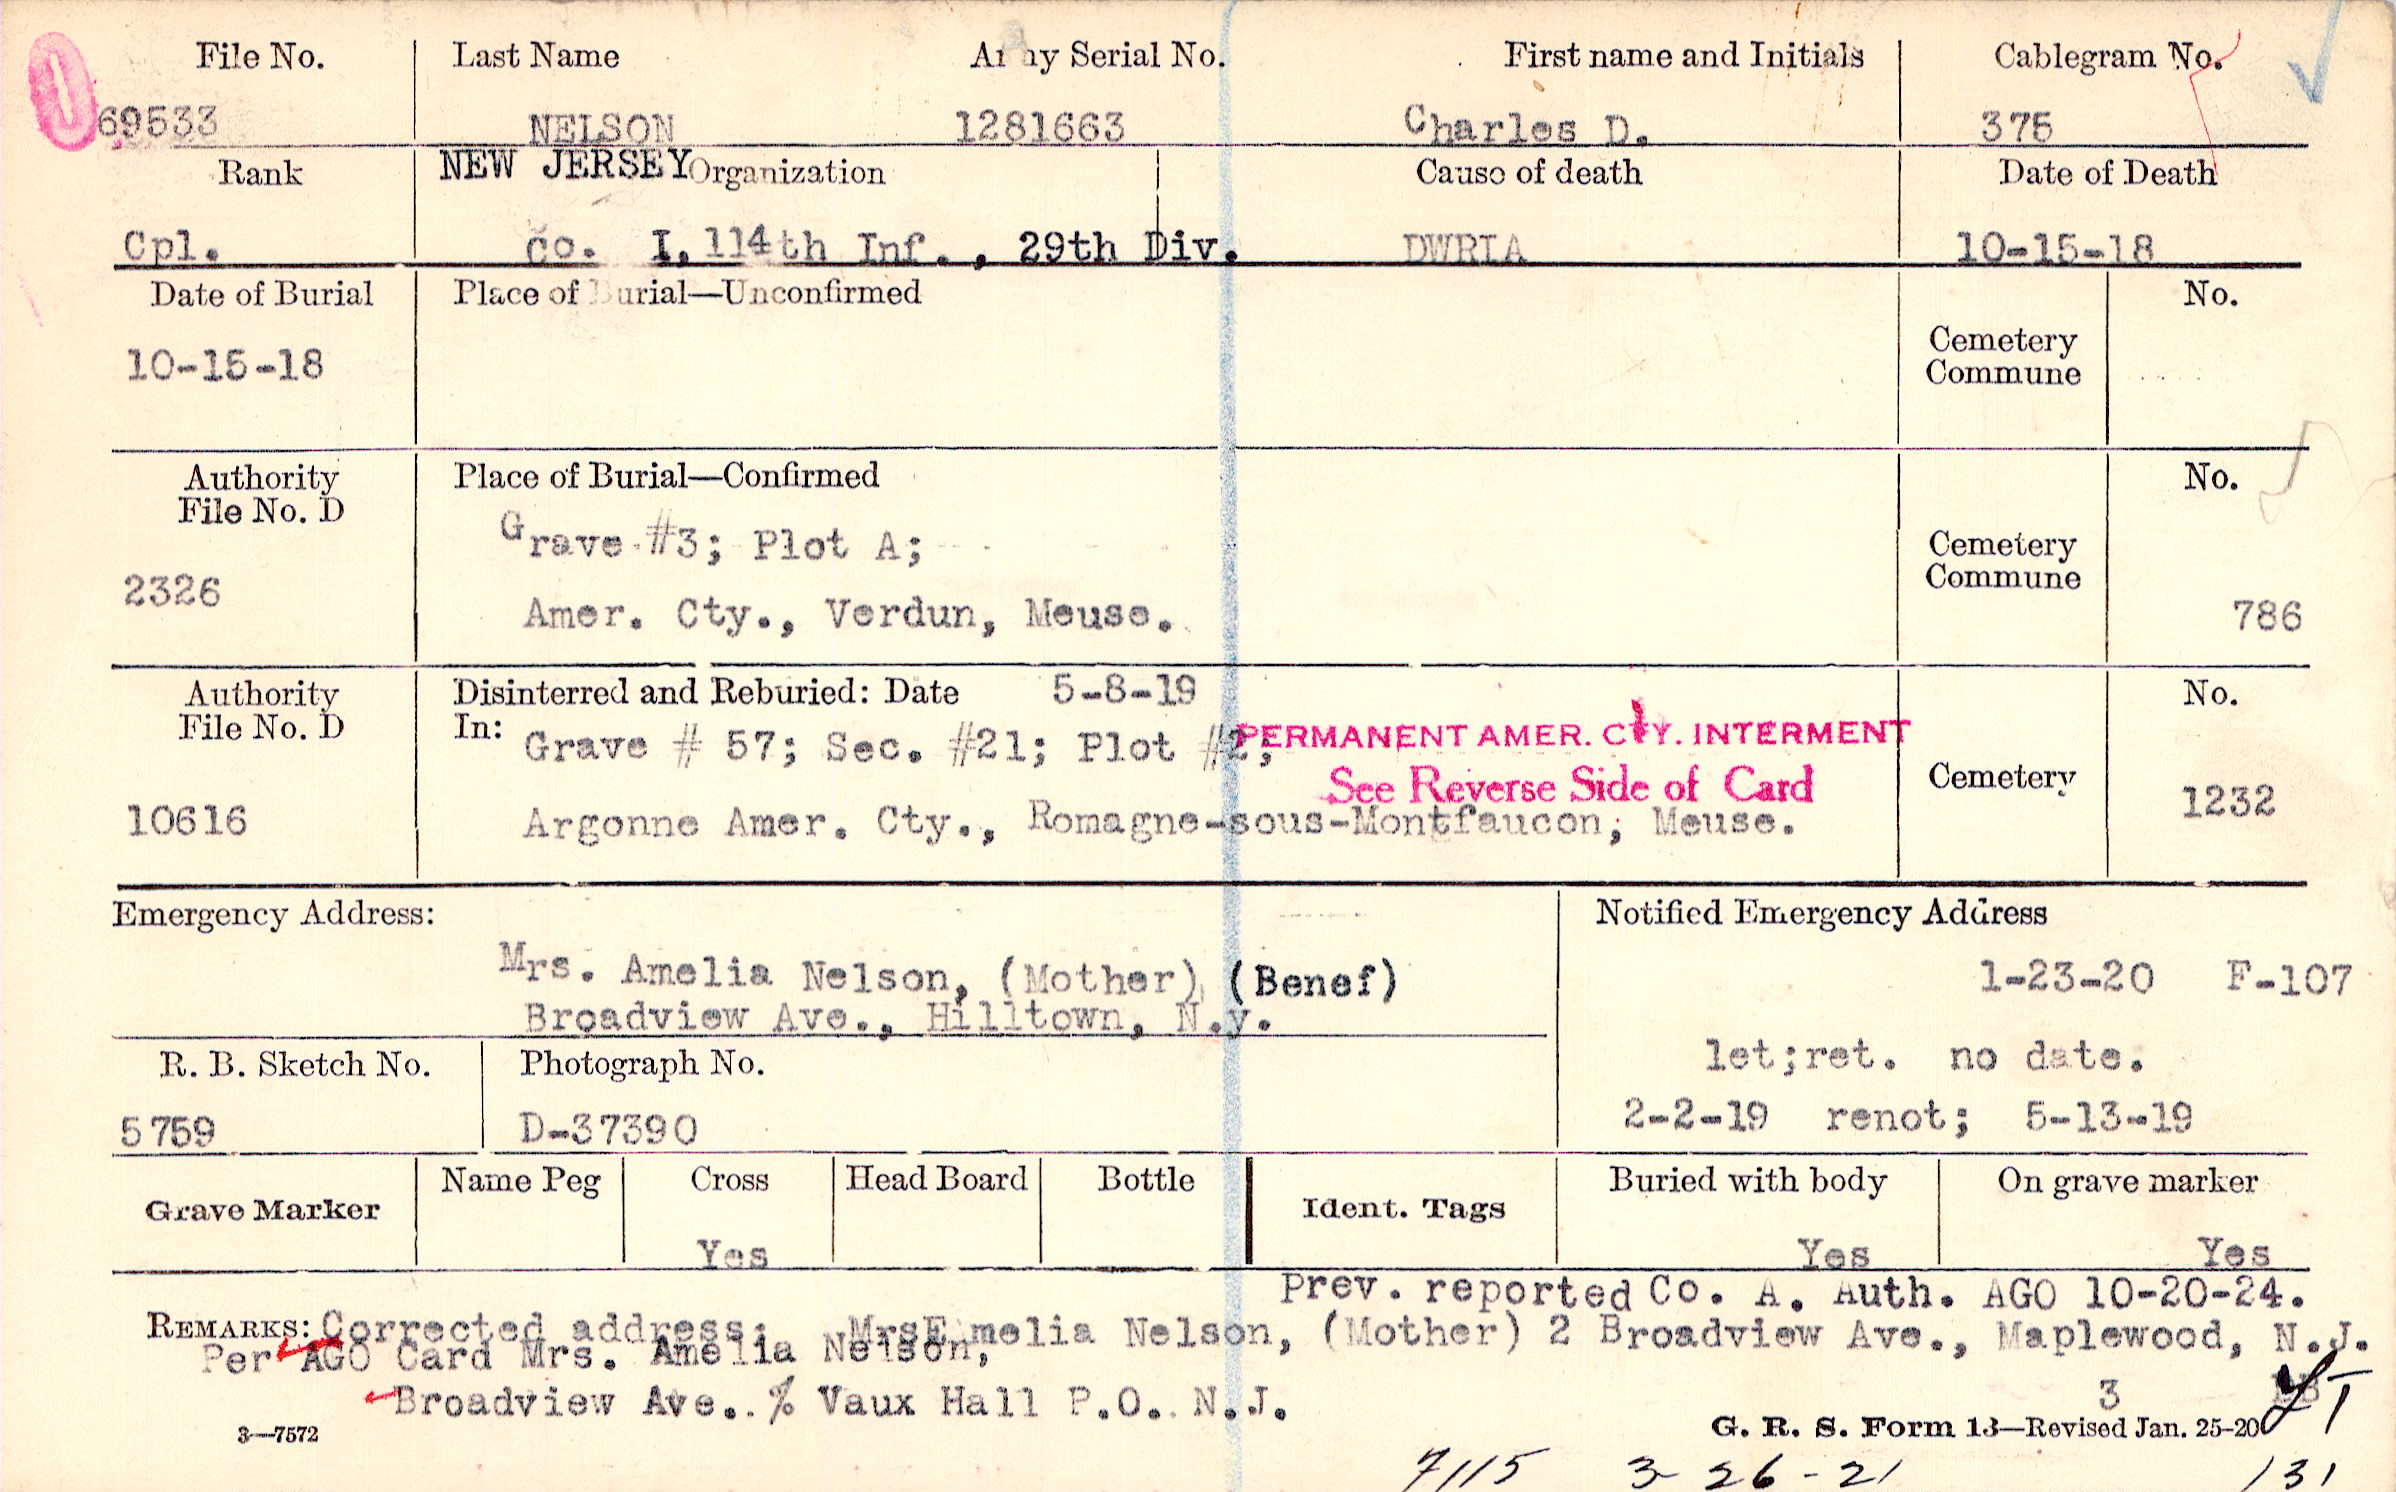 File No. Last Name Army Serial No. First name and Initials Cablegram No.
69533 NELSON 1281663 Charles D. 375
Rank NEW JERSEY Organization Cause of death Date of Death
Cpl. Co. I, 114th Inf., 29th Div. DWRIA 10-15-18
Date of Burial Place of Burial—Unconfirmed No.
10-15-18 Cemetery
Commune
Authority Place of Burial—Confirmed No.
File No. D
Grave #3; Plot A; Cemetery
2326 Commune
Amer. Cty., Verdun, Meuse. 786
Authority Disinterred and Reburied: Date 5-8-19 No.
File No. D In: Grave # 57; Sec. #21; Plot #2;
PERMANENT AMER. CTY. INTERMENT
See Reverse Side of Card
Cemetery 1232
10616 Argonne Amer. Cty., Romagne-sous-Montfaucon; Meuse.
Emergency Address: Notified Emergency Address
Mrs. Amelia Nelson, (Mother) (Benef) 1-23-20 F-107
Broadview Ave., Hilltown, N.y.
R. B. Sketch No. Photograph No. let;ret. no date.
5759 D-37390 2-2-19 renot; 5-13-19
Grave Marker Name Peg Cross Head Board Bottle Ident. Tags Buried with body On grave marker
Yes Yes Yes
Prev. reported Co. A. Auth. AGO 10-20-24.
REMARKS: Corrected address: Mrs Emelia Nelson, (Mother) 2 Broadview Ave., Maplewood, N.J.
Per AGO Card Mrs. Amelia Nelson,
Broadview Ave. % Vaux Hall P.O. N.J. 3
3—7572 G. R. S. Form 13—Revised Jan. 25-20
7/15 3-26-21 131